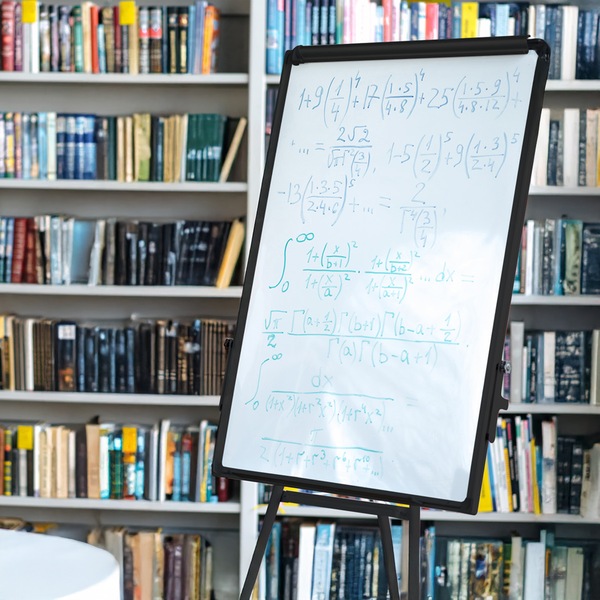 1+9(1/4)^4+17(1·5/4·8)^4+25(1·5·9/4·8·12)^4+
+...=2√2/√πΓ²(3/4), 1-5(1/2)^5+9(1·3/2·4)^5
-13(1·3·5/2·4·6)^5+...=2/Γ⁴(3/4),
∫₀^∞ 1+(x/b+1)²/1+(x/a)² · 1+(x/b+2)²/1+(x/a+1)² ... dx =
√π/2 Γ(a+1/2)Γ(b+1)Γ(b-a+1/2)/Γ(a)Γ(b-a+1).
∫₀^∞ dx/(1+x²)(1+r²x²)(1+r⁴x²)... =
π/2(1+r+r³+r⁶+r¹⁰+...